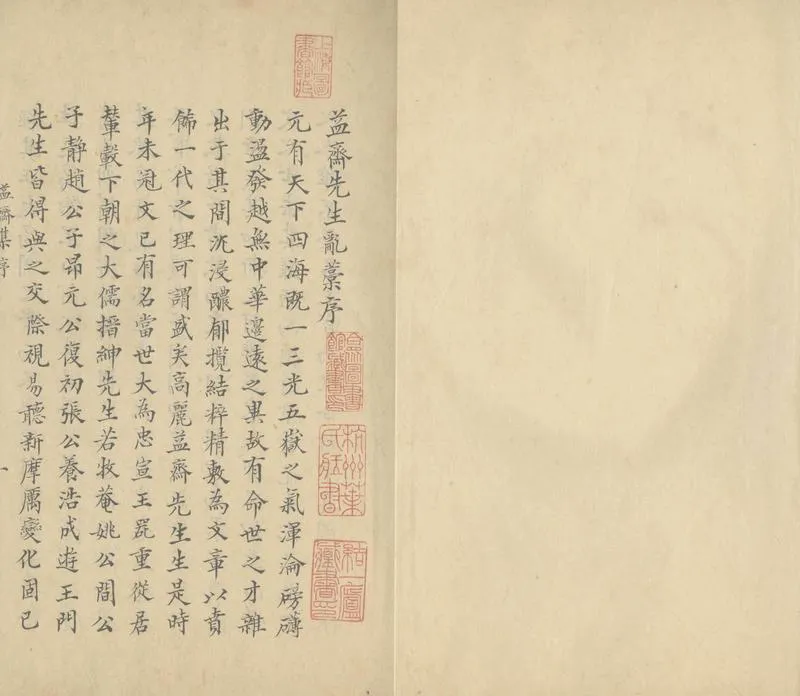 上海圖
書館藏
益齋先生亂藁序
元有天下四海既一三光五嶽之氣渾淪磅礴
動盪發越無中華邊遠之異故有命世之才雜
出于其間沉浸醲郁攬結粹精敷為文章以賁
飾一代之理可謂盛矣高麗益齋先生生是時
年未冠文已有名當世大為忠宣王器重從居
輦轂下朝之大儒搢紳先生若牧菴姚公閻公
子靜趙公子昂元公復初張公養浩咸遊王門
先生皆得與之交際視易聽新摩厲變化固已
益齋集序
一
杭州葉
氏藏書
結一廬
藏書印